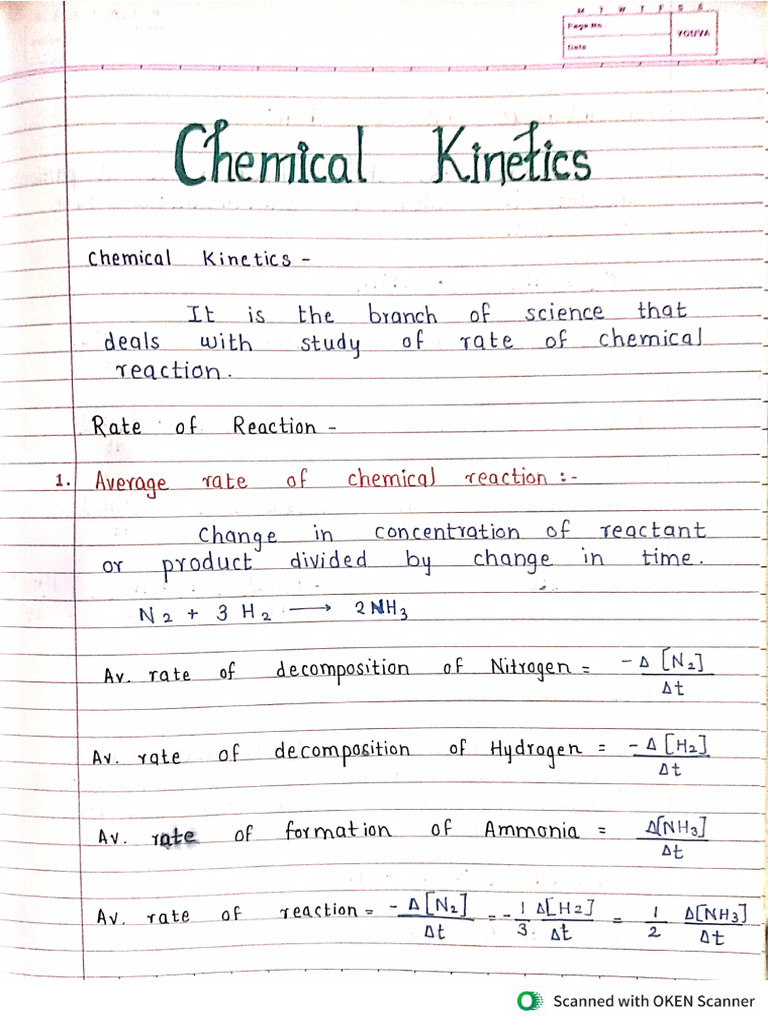 M T W T F S S
Page No
YOUVA
Date
Chemical Kinetics
Chemical Kinetics -
It is the branch of science that
deals with study of rate of chemical
reaction.
Rate of Reaction -
1. Average rate of chemical reaction :-
Change in concentration of reactant
or product divided by change in time.
N₂ + 3 H₂ ⟶ 2NH₃
Av. rate of decomposition of Nitrogen = -Δ [N₂] / Δt
Av. rate of decomposition of Hydrogen = -Δ [H₂] / Δt
Av. rate of formation of Ammonia = Δ[NH₃] / Δt
Av. rate of reaction = -Δ[N₂] / Δt = -1/3 Δ[H₂] / Δt = 1/2 Δ[NH₃] / Δt
Scanned with OKEN Scanner